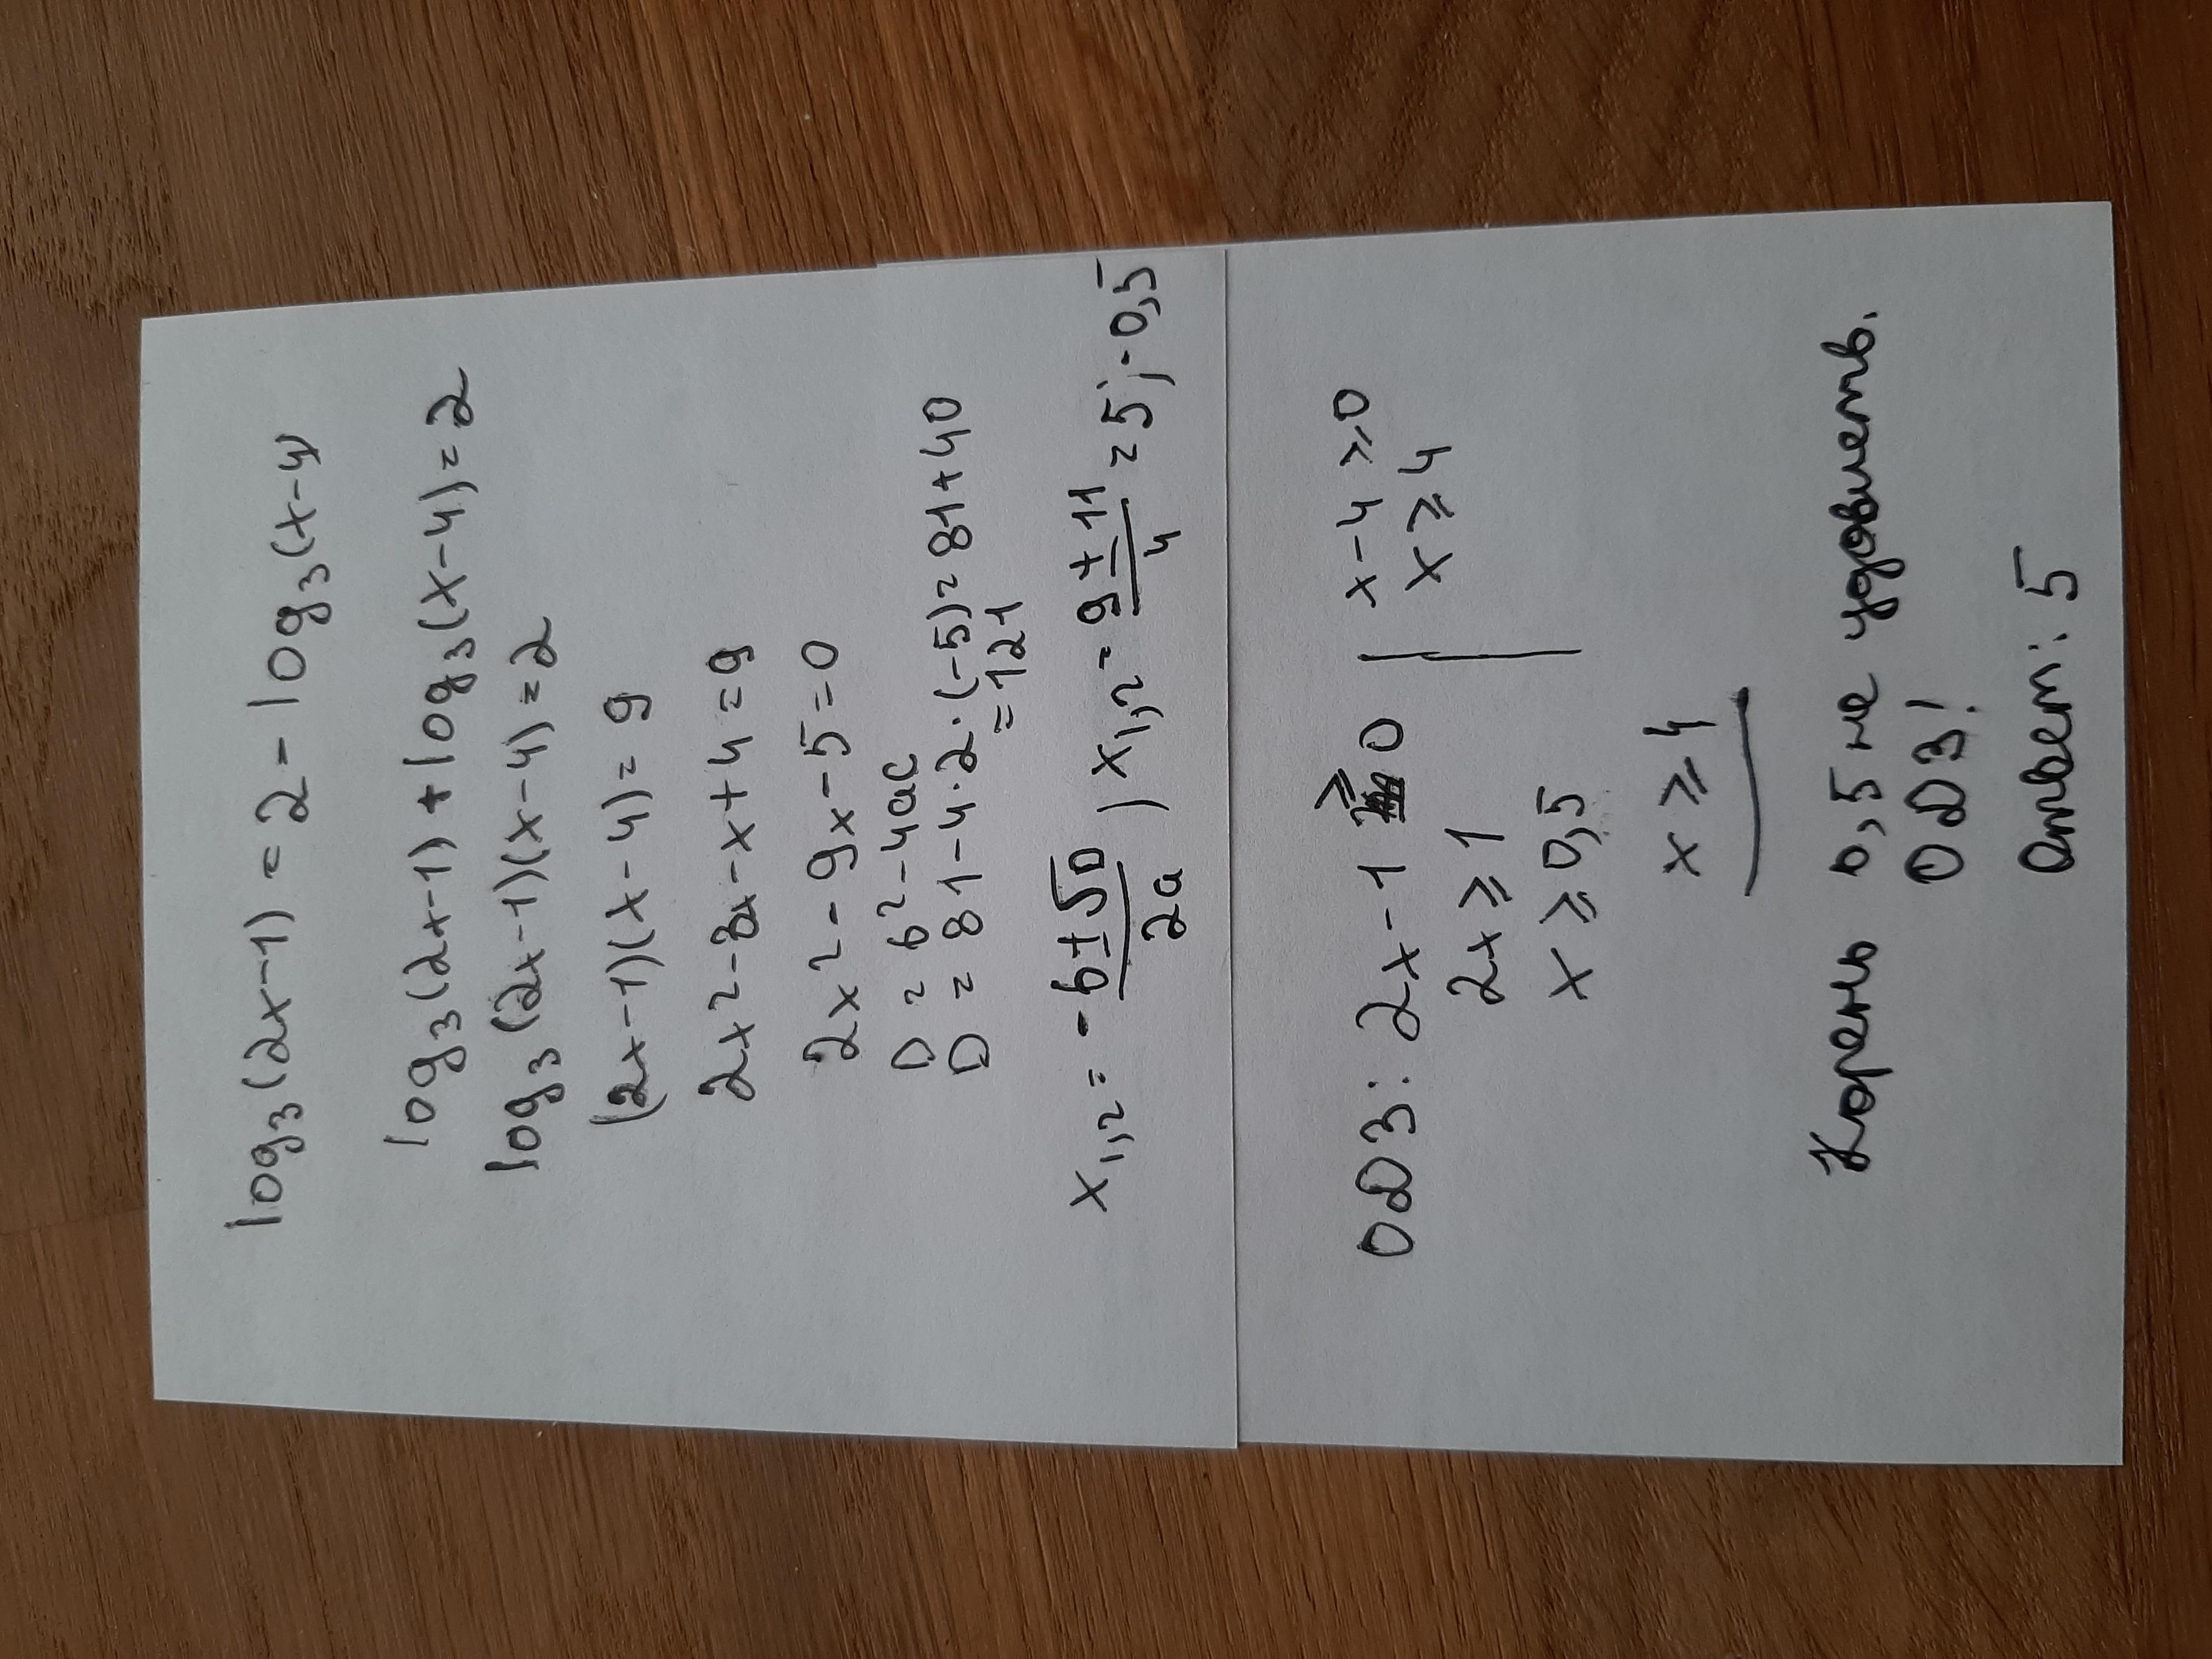 log₃(2x-1) = 2 - log₃(x-4)
log₃(2x-1) + log₃(x-4) = 2
log₃(2x-1)(x-4) = 2
(2x-1)(x-4) = 9
2x² - 8x - x + 4 = 9
2x² - 9x - 5 = 0
D = b² - 4ac
D = 81 - 4·2·(-5) = 81 + 40
= 121
x₁,₂ = (-b ± √D)/2a ) x₁,₂ = (9 ± 11)/4 = 5; -0,5
ОДЗ: 2x - 1 ≥ 0 | x - 4 ≥ 0
2x ≥ 1 | x ≥ 4
x ≥ 0,5
x ≥ 4
Корень 0,5 не удовлетв.
ОДЗ!
Ответ: 5